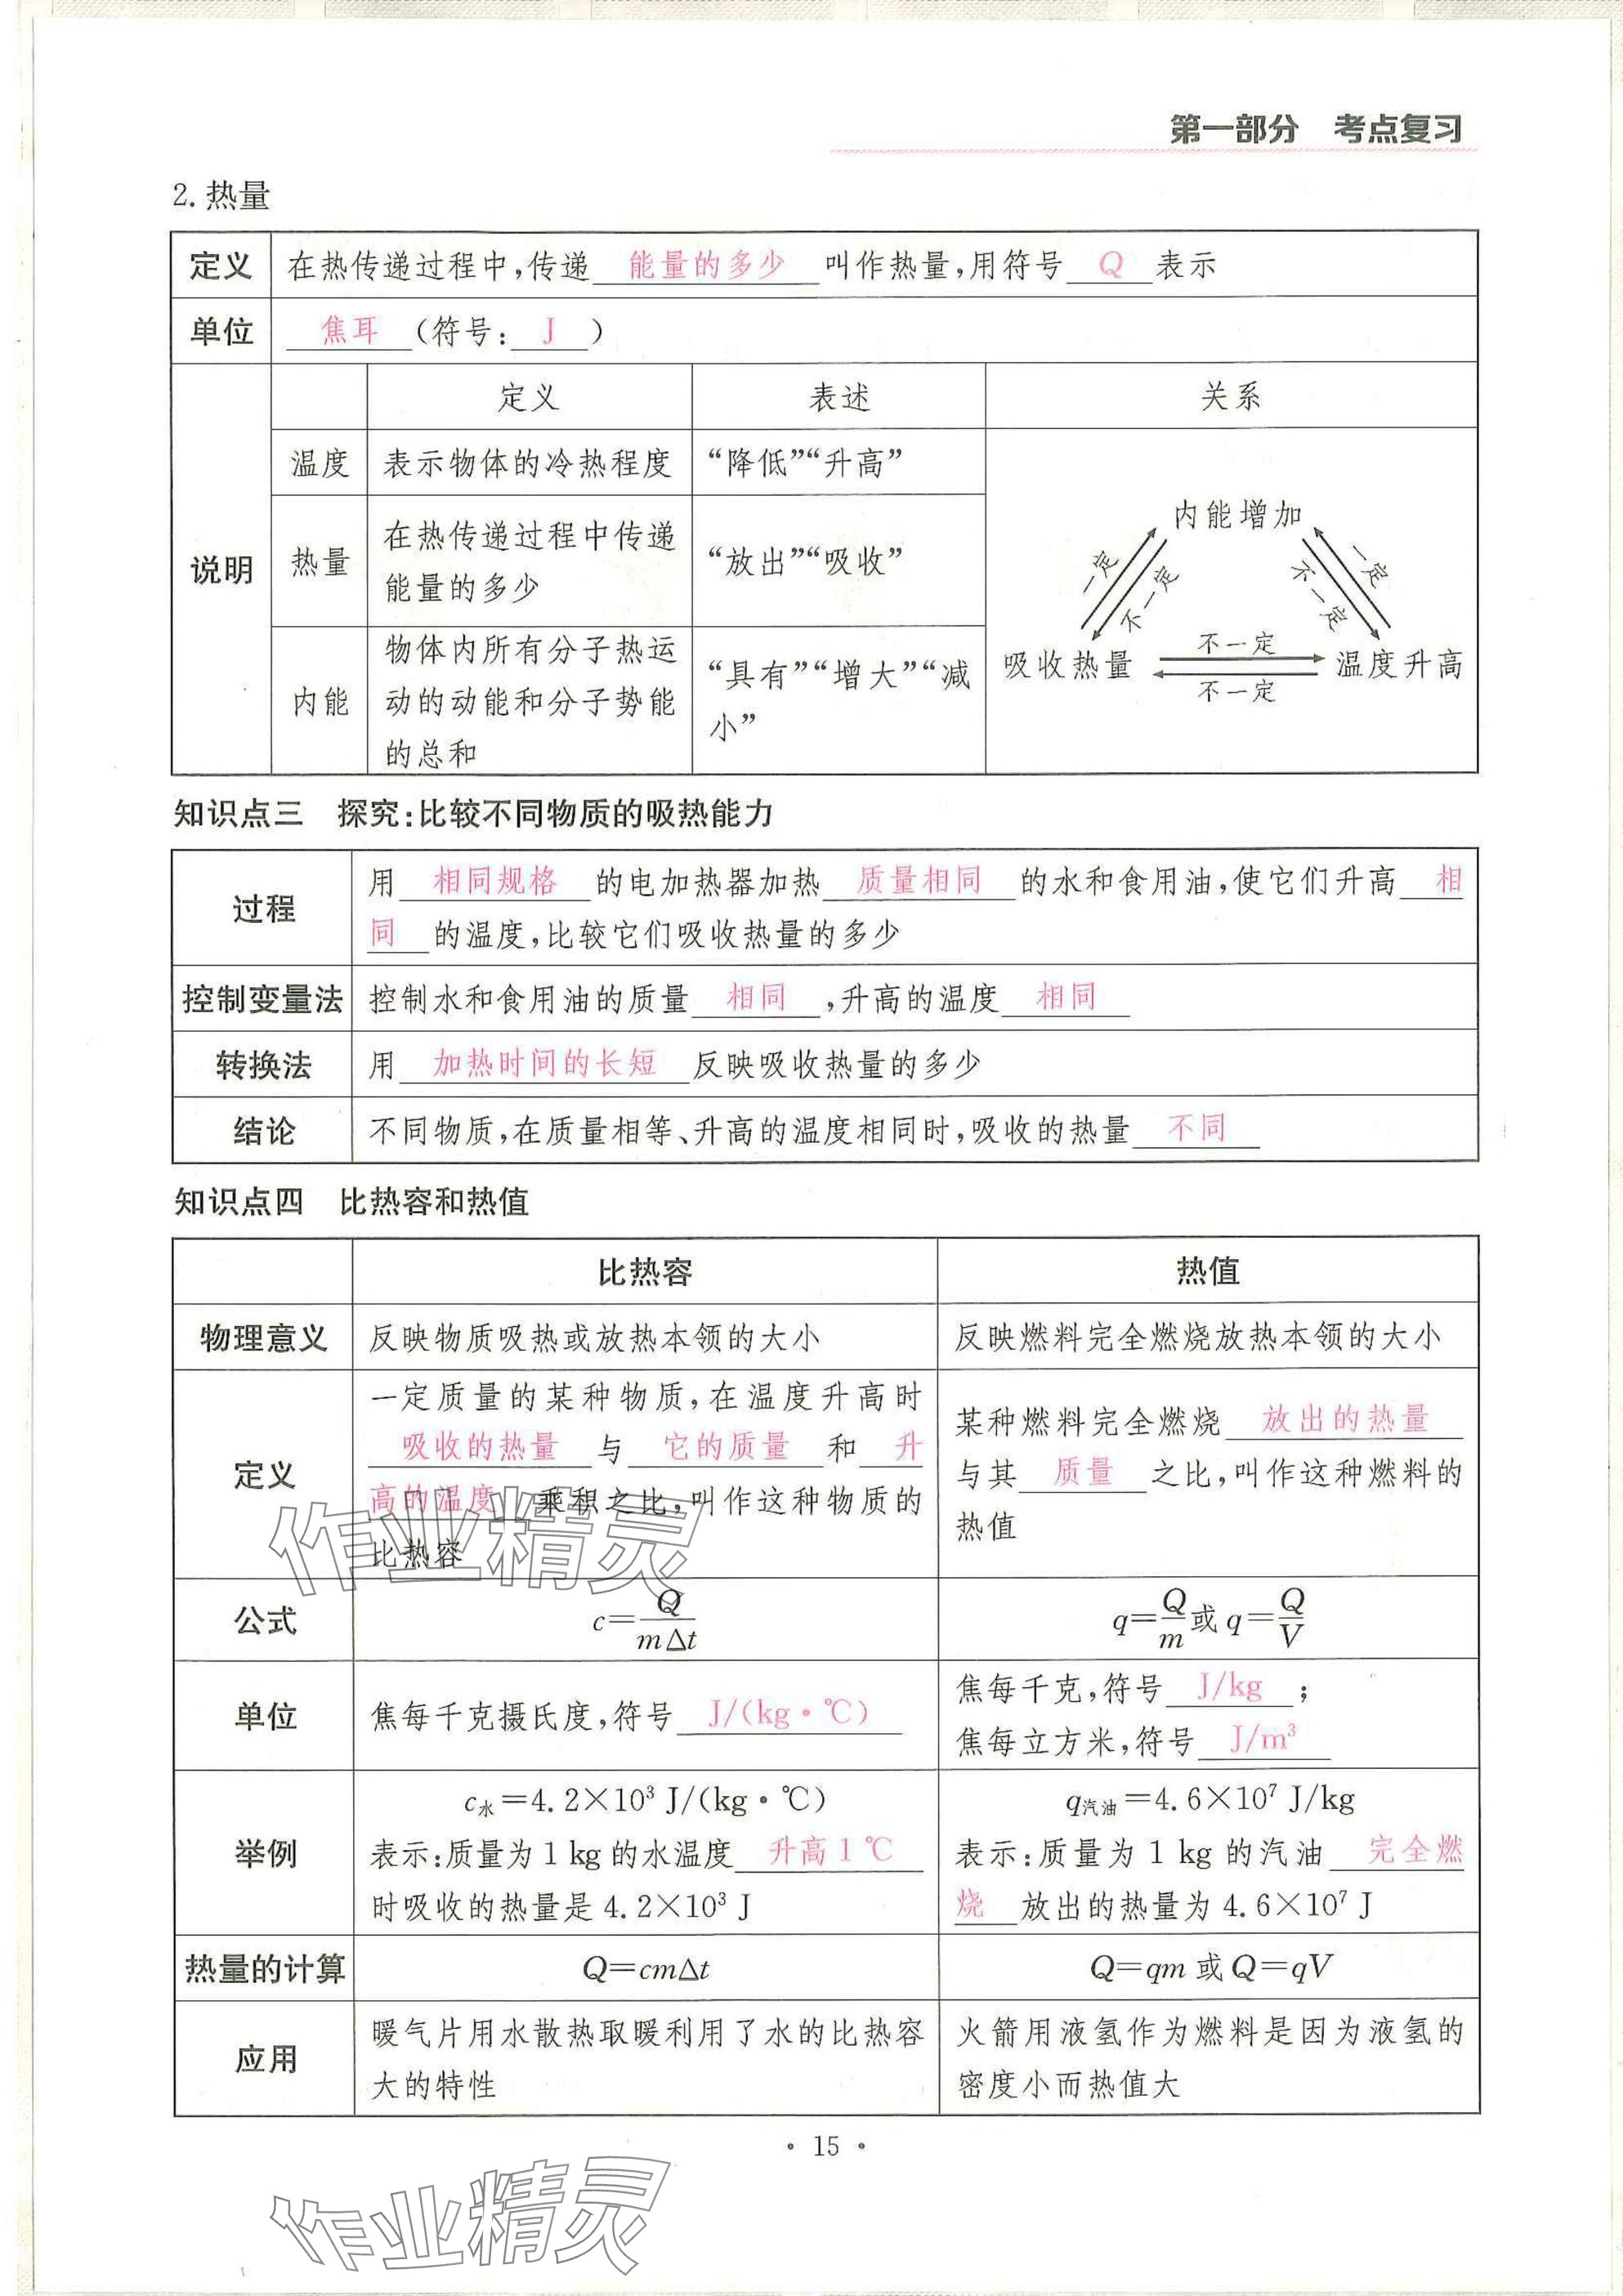 第一部分　考点复习
2. 热量
定义　在热传递过程中,传递 能量的多少 叫作热量,用符号 Q 表示
单位　焦耳 (符号: J )
定义　表述　关系
温度　表示物体的冷热程度　“降低”“升高”
说明
热量　在热传递过程中传递
能量的多少　“放出”“吸收”
内能　物体内所有分子热运
动的动能和分子势能
的总和　“具有”“增大”“减
小”
内能增加
一定　不一定　不一定　一定
吸收热量　不一定　温度升高
不一定
知识点三　探究:比较不同物质的吸热能力
过程　用 相同规格 的电加热器加热 质量相同 的水和食用油,使它们升高 相
同 的温度,比较它们吸收热量的多少
控制变量法　控制水和食用油的质量 相同 ,升高的温度 相同
转换法　用 加热时间的长短 反映吸收热量的多少
结论　不同物质,在质量相等、升高的温度相同时,吸收的热量 不同
知识点四　比热容和热值
比热容　热值
物理意义　反映物质吸热或放热本领的大小　反映燃料完全燃烧放热本领的大小
定义　一定质量的某种物质,在温度升高时
吸收的热量 与 它的质量 和 升
高的温度 乘积之比,叫作这种物质的
比热容
某种燃料完全燃烧 放出的热量
与其 质量 之比,叫作这种燃料的
热值
公式　c=Q/mΔt　q=Q/m 或 q=Q/V
单位　焦每千克摄氏度,符号 J/(kg·℃)
焦每千克,符号 J/kg ;
焦每立方米,符号 J/m³
举例　c水=4.2×10³ J/(kg·℃)
表示:质量为 1 kg 的水温度 升高 1 ℃
时吸收的热量是 4.2×10³ J
q汽油=4.6×10⁷ J/kg
表示:质量为 1 kg 的汽油 完全燃
烧 放出的热量为 4.6×10⁷ J
热量的计算　Q=cmΔt　Q=qm 或 Q=qV
应用　暖气片用水散热取暖利用了水的比热容
大的特性
火箭用液氢作为燃料是因为液氢的
密度小而热值大
· 15 ·
作业精灵
作业精灵